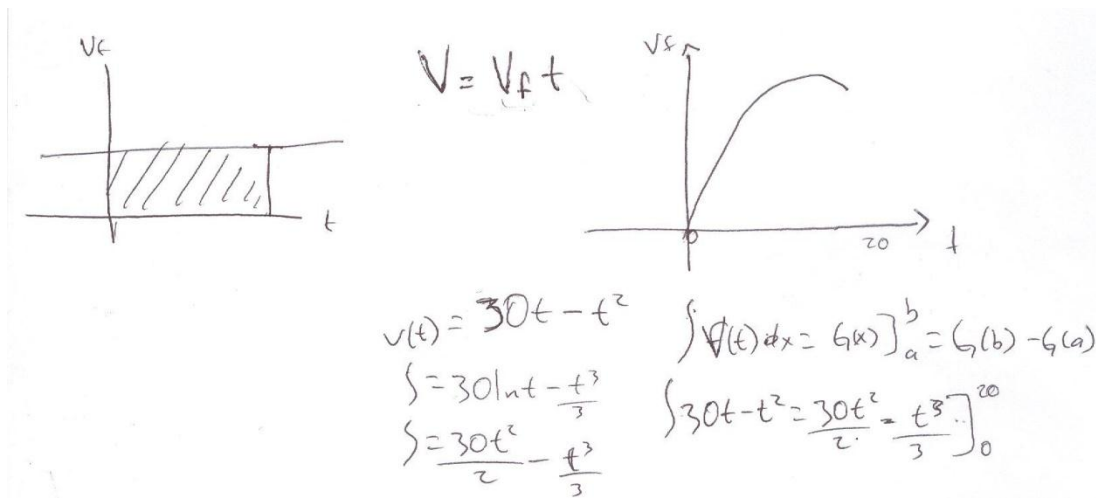 Vf
t
V = Vf t
Vf
0
20
t
v(t) = 30t - t²
∫ = 30 ln t - t³/3
∫ = 30t²/2 - t³/3
∫ V(t) dx = G(x)]ₐᵇ = G(b) - G(a)
∫ 30t - t² = 30t²/2 - t³/3 ]₀²⁰